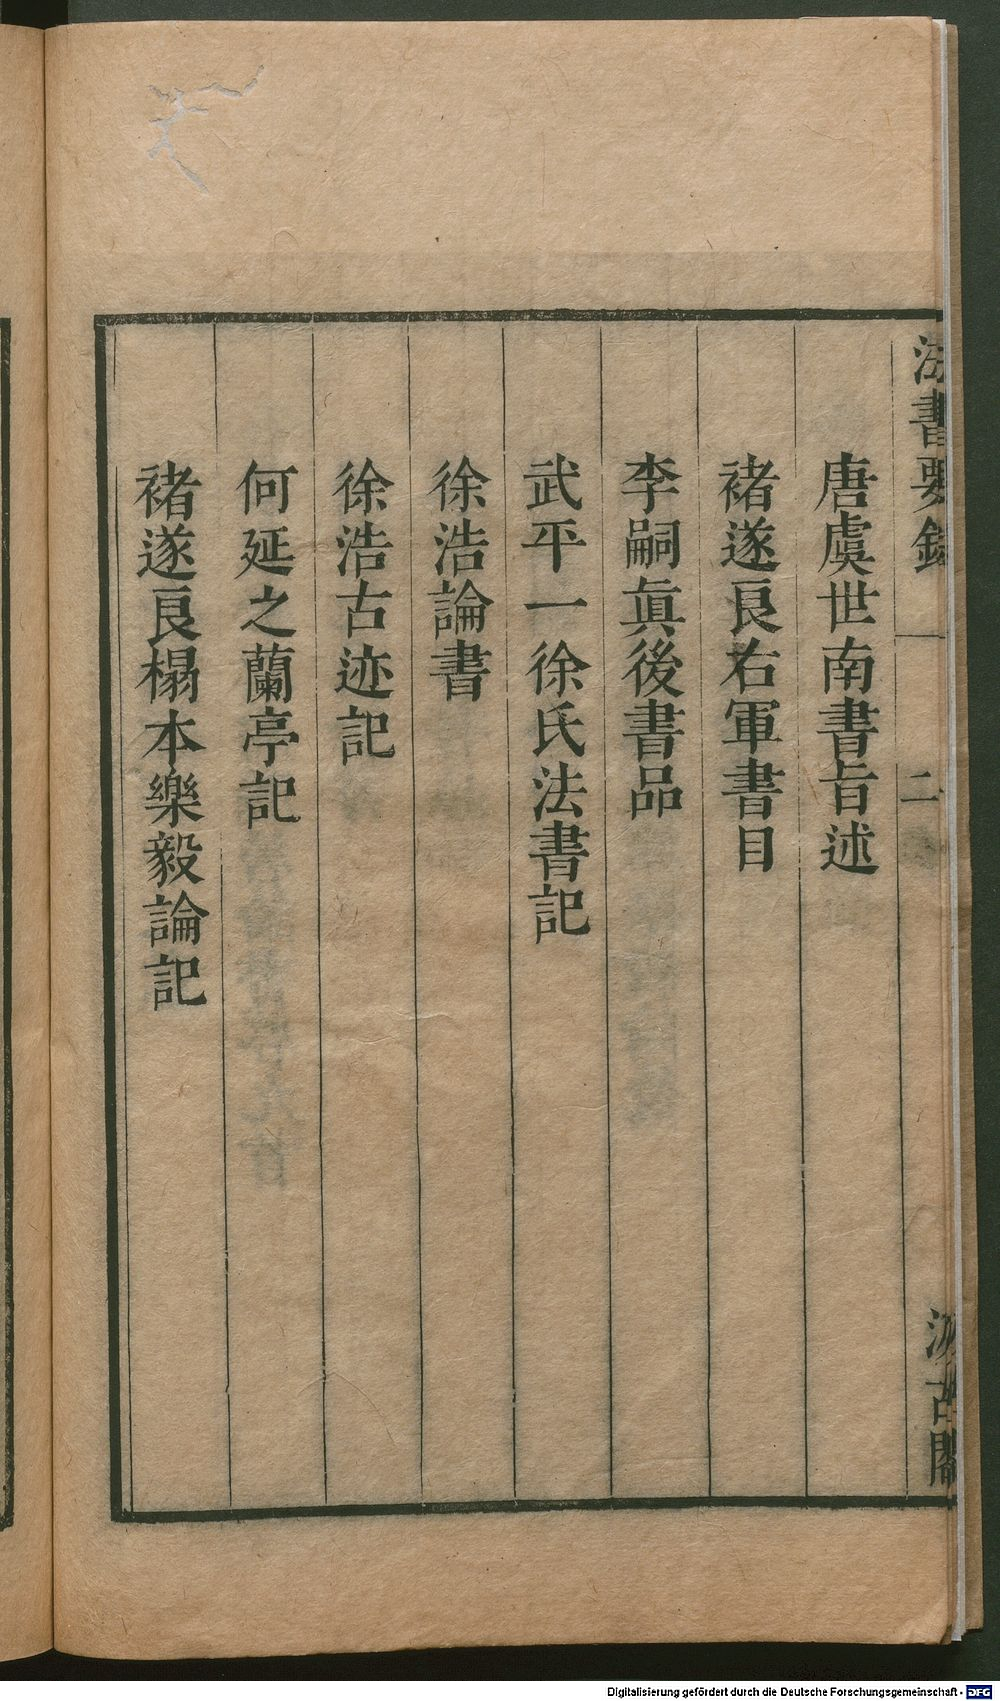 法書要錄
二
汲古閣
唐虞世南書旨述
褚遂良右軍書目
李嗣眞後書品
武平一徐氏法書記
徐浩論書
徐浩古迹記
何延之蘭亭記
褚遂良榻本樂毅論記
Digitalisierung gefördert durch die Deutsche Forschungsgemeinschaft - DFG